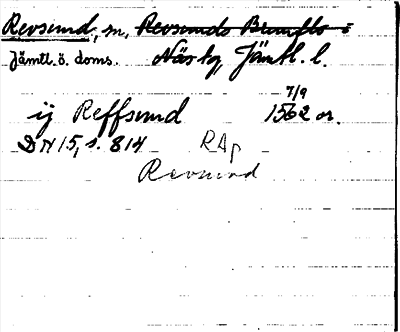 Revsund, sn, Revsunds Brunflo
Jämtl. ö. doms. Näs tg, Jämtl. l.
7/9
ij Reffsund 1562 or.
DN 15, s. 814 RAp
Revsund